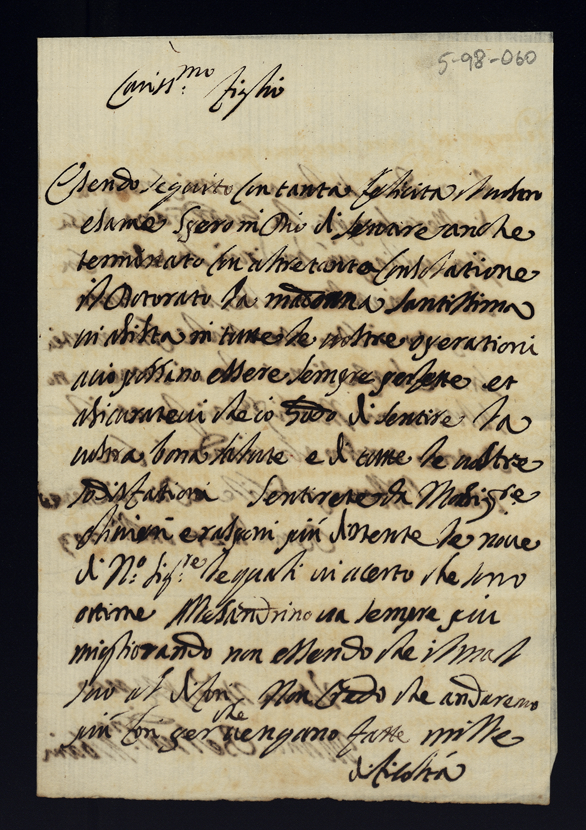 5-98-060
Cariss.mo figlio
Esendo seguito con tanta felicità il vostro
esame spero in Dio di sentire anche
terminato con altretanta consolatione
il Dotorato la madonna santissima
vi asista in tutte le vostre operationi
aciò possino essere sempre perfette et
asicuratevi che io godo di sentire la
vostra bona salute e di tutte le vostre
sodisfationi sentirete da Monsig.re
più distente le nove
di N.o Sig.re le quali vi acerto che sono
ottime Alesandrino va sempre più
migliorando non essendo che il mal
suo al non credo che andaremo
più con per che vengano fatte mille
dificoltà